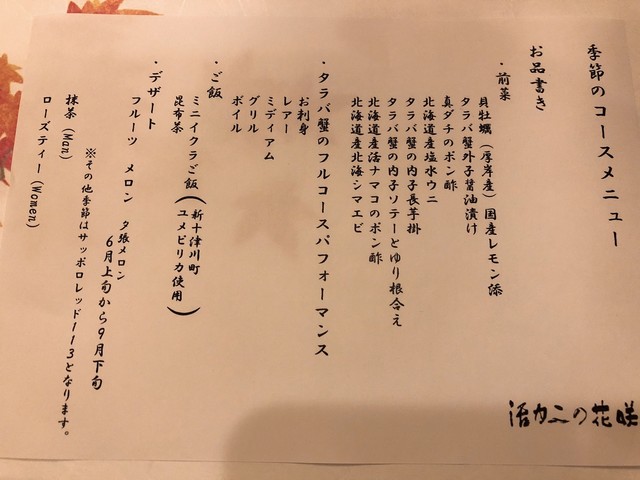 季節のコースメニュー
お品書き
・前菜
貝牡蠣（厚岸産）国産レモン添
タラバ蟹外子醤油漬け
真ダチのポン酢
北海道産塩水ウニ
タラバ蟹の内子長芋掛
タラバ蟹の内子ソテーとゆり根合え
北海道産活ナマコのポン酢
北海道産北海シマエビ
・タラバ蟹のフルコースパフォーマンス
お刺身
レアー
ミディアム
グリル
ボイル
・ご飯
ミニイクラご飯（新十津川町
ユメピリカ使用）
昆布茶
・デザート
フルーツ　メロン　夕張メロン
6月上旬から9月下旬
※その他季節はサッポロレッド113となります。
抹茶（Man）
ローズティー（Women）
活カニの花咲